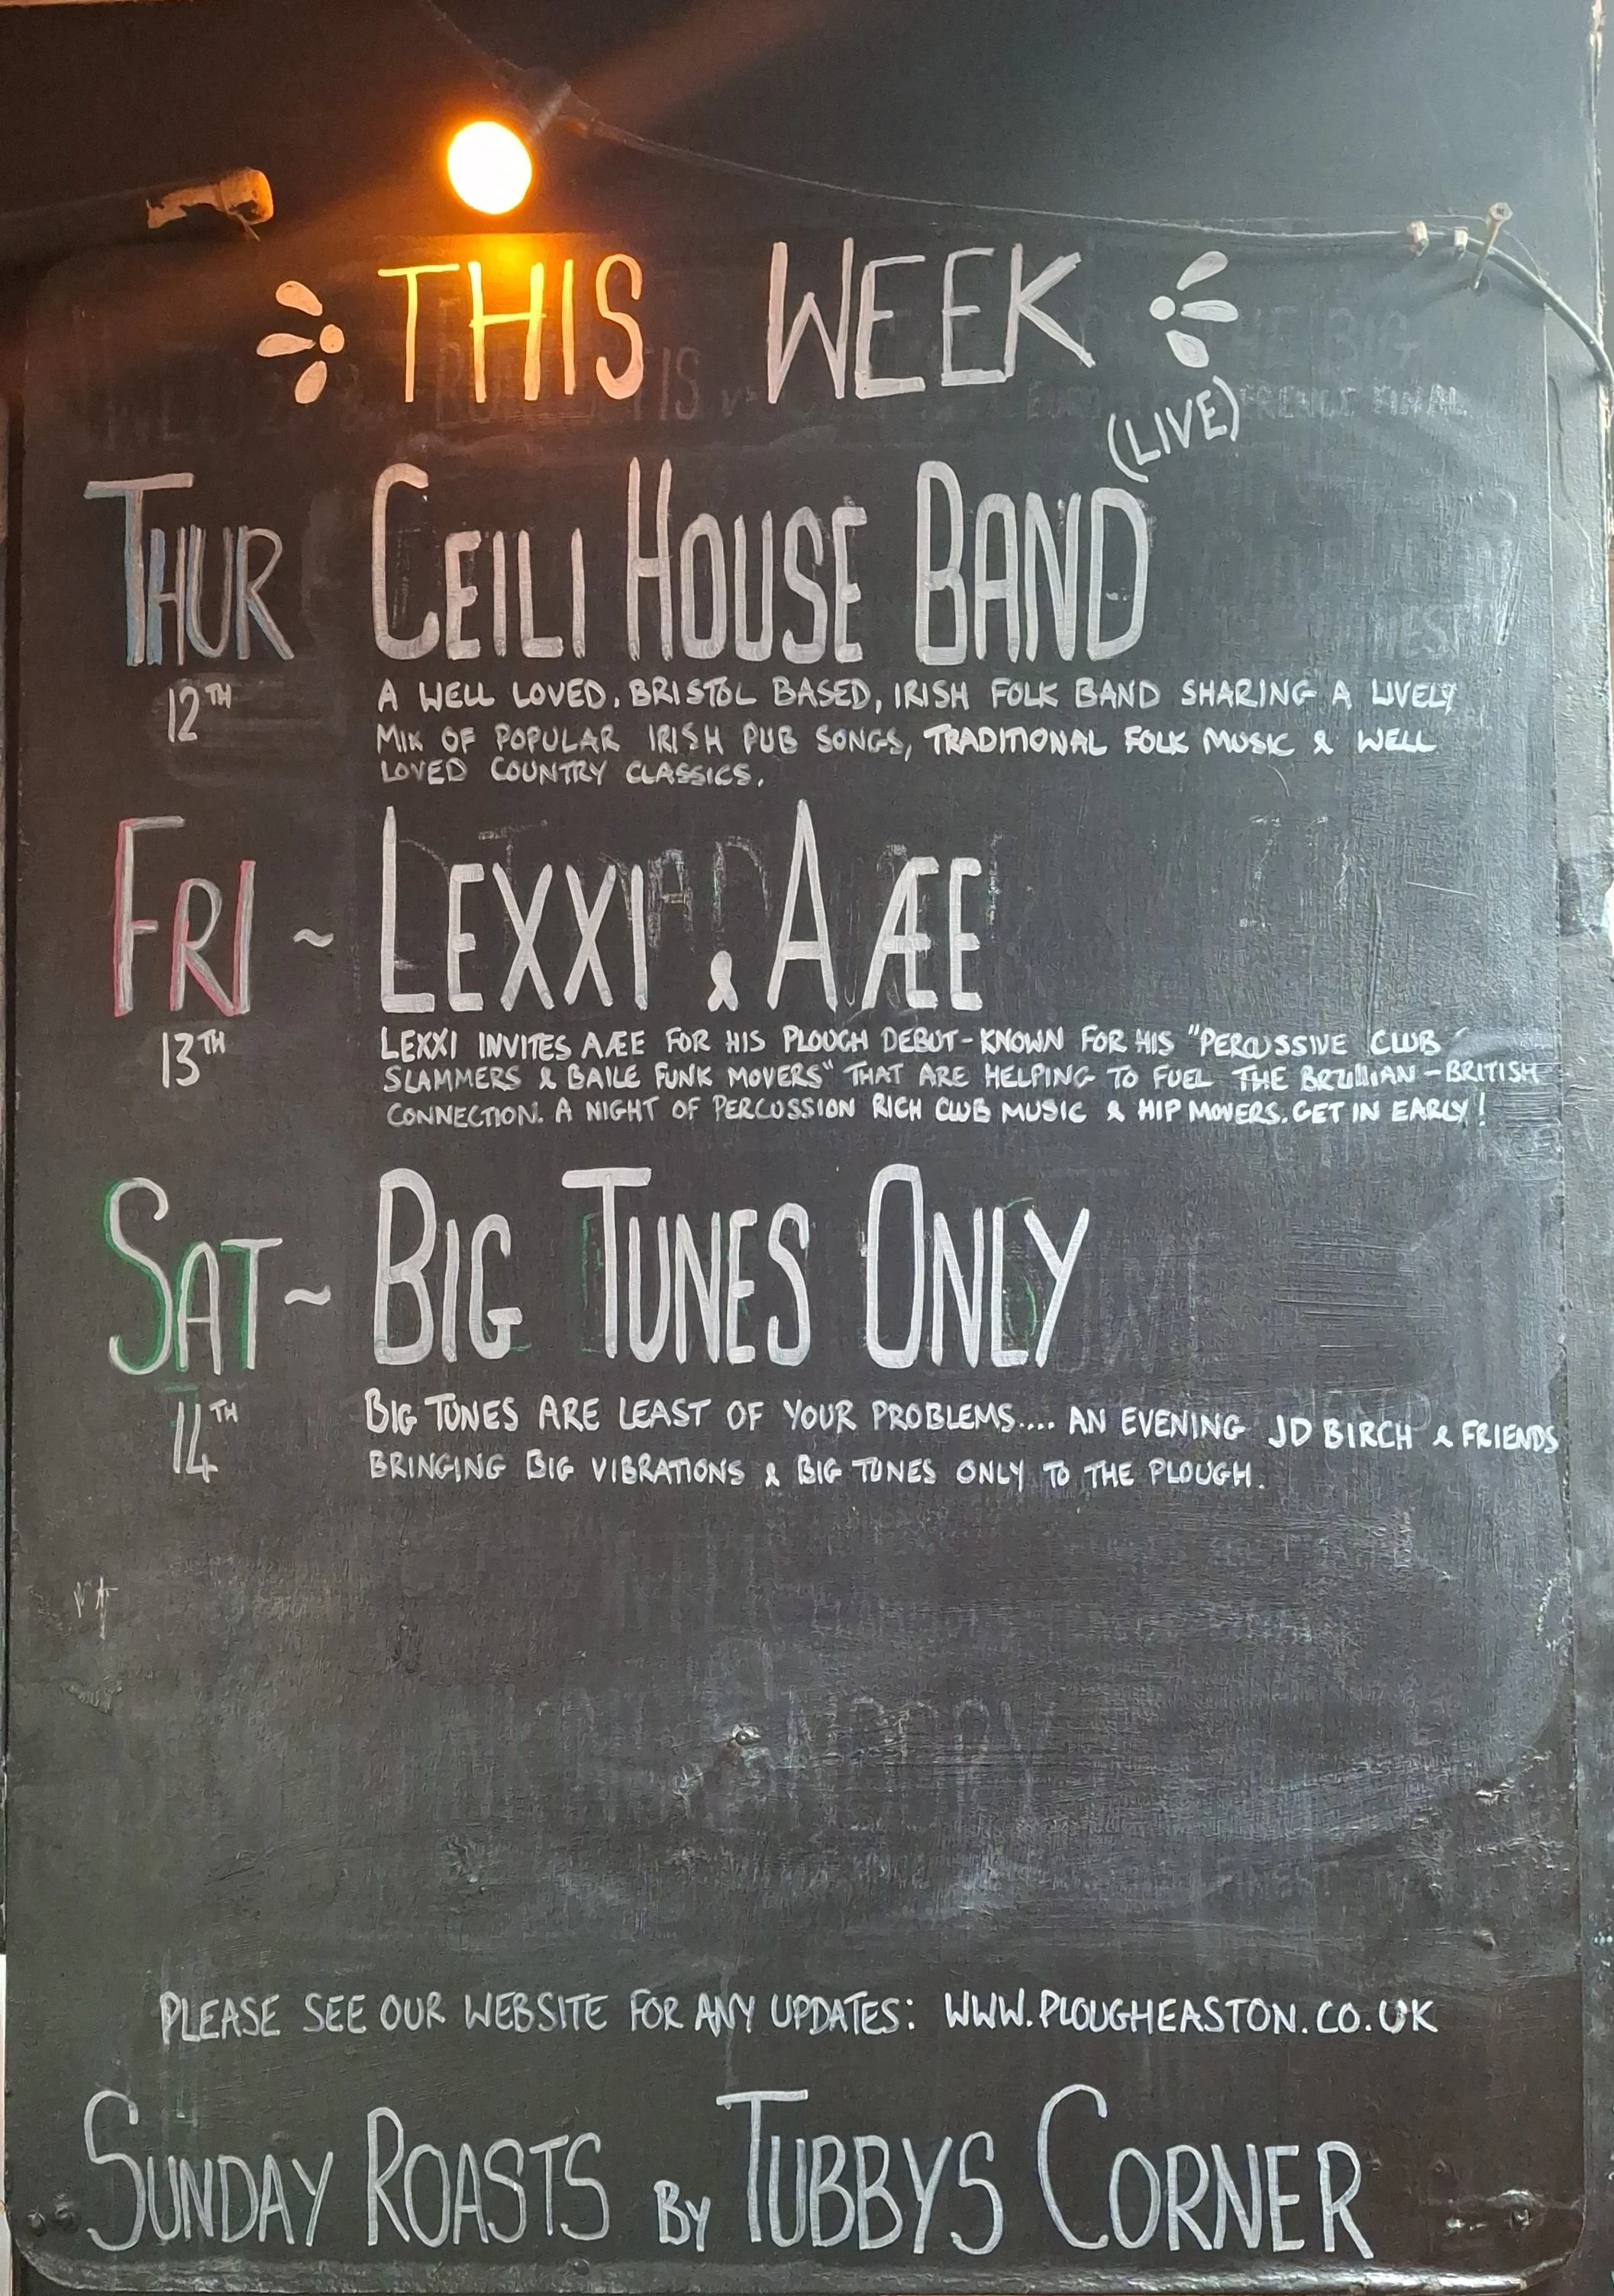 THIS WEEK
(LIVE)
THUR CEILI HOUSE BAND
12TH
A WELL LOVED, BRISTOL BASED, IRISH FOLK BAND SHARING A LIVELY
MIX OF POPULAR IRISH PUB SONGS, TRADITIONAL FOLK MUSIC & WELL
LOVED COUNTRY CLASSICS.
FRI ~ LEXXI & AÆE
13TH
LEXXI INVITES AÆE FOR HIS PLOUGH DEBUT - KNOWN FOR HIS "PERCUSSIVE CLUB
SLAMMERS & BAILE FUNK MOVERS" THAT ARE HELPING TO FUEL THE BRZILLIAN - BRITISH
CONNECTION. A NIGHT OF PERCUSSION RICH CLUB MUSIC & HIP MOVERS. GET IN EARLY!
SAT ~ BIG TUNES ONLY
14TH
BIG TUNES ARE LEAST OF YOUR PROBLEMS.... AN EVENING JD BIRCH & FRIENDS
BRINGING BIG VIBRATIONS & BIG TUNES ONLY TO THE PLOUGH.
PLEASE SEE OUR WEBSITE FOR ANY UPDATES: WWW.PLOUGHEASTON.CO.UK
SUNDAY ROASTS BY TUBBYS CORNER